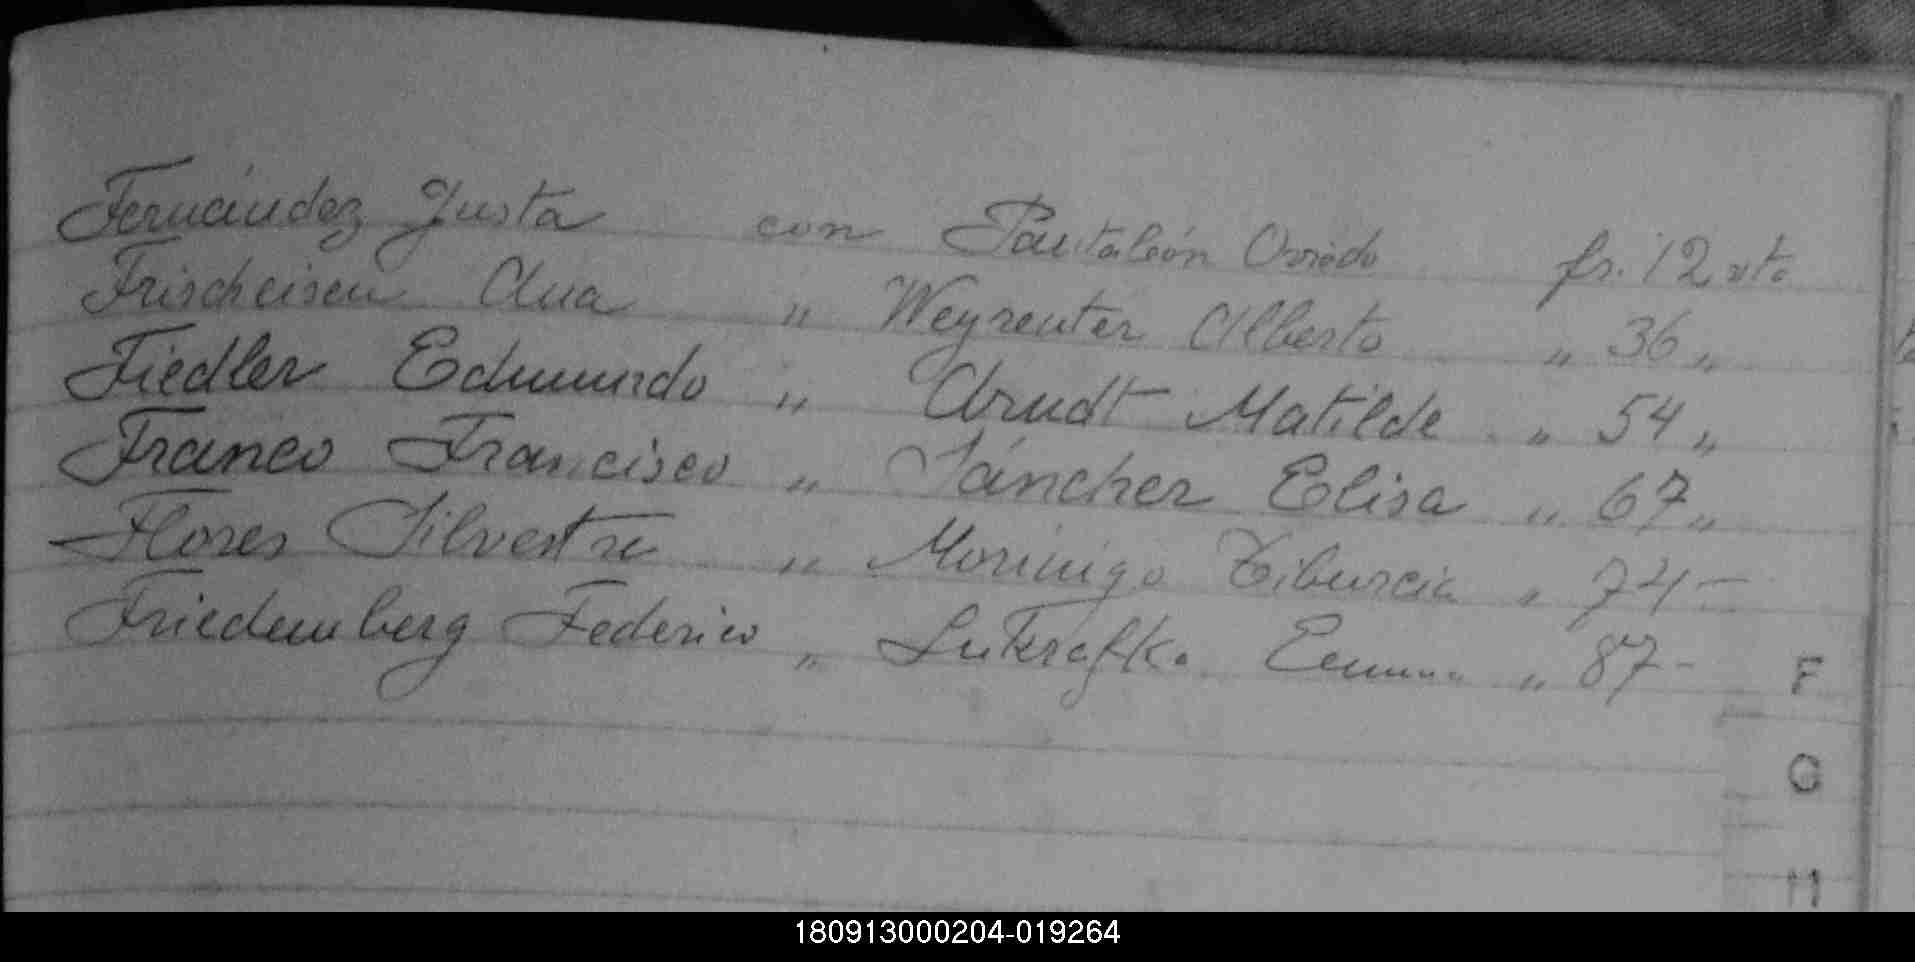 Fernández Justa con Pantaleón Oviedo fs. 12 vto
Frischeisen Ana " Weyreuter Alberto " 36 "
Fiedler Edmundo " Arndt Matilde " 54 "
Franco Francisco " Sáncher Elisa " 67 "
Flores Silvestre " Morinigo Tiburcia " 74 -
Friedemberg Federico " Emma " 87 -
F
G
H
180913000204-019264